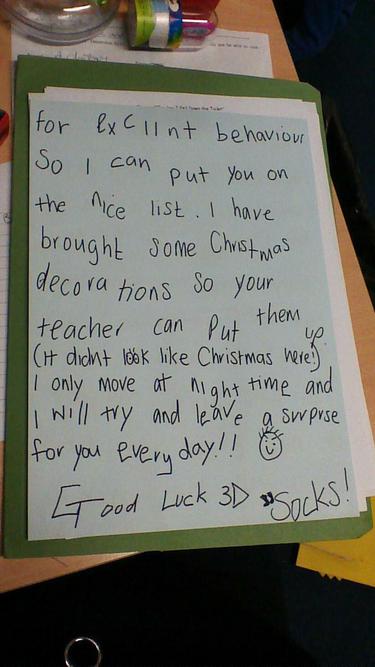 for exCllnt behaviour
So I can put you on
the nice list. I have
brought some Christmas
decorations so your
teacher can put them up.
(It didnt look like Christmas here!)
I only move at night time and
I will try and leave a surprise
for you every day!!
Good Luck 3D Socks!